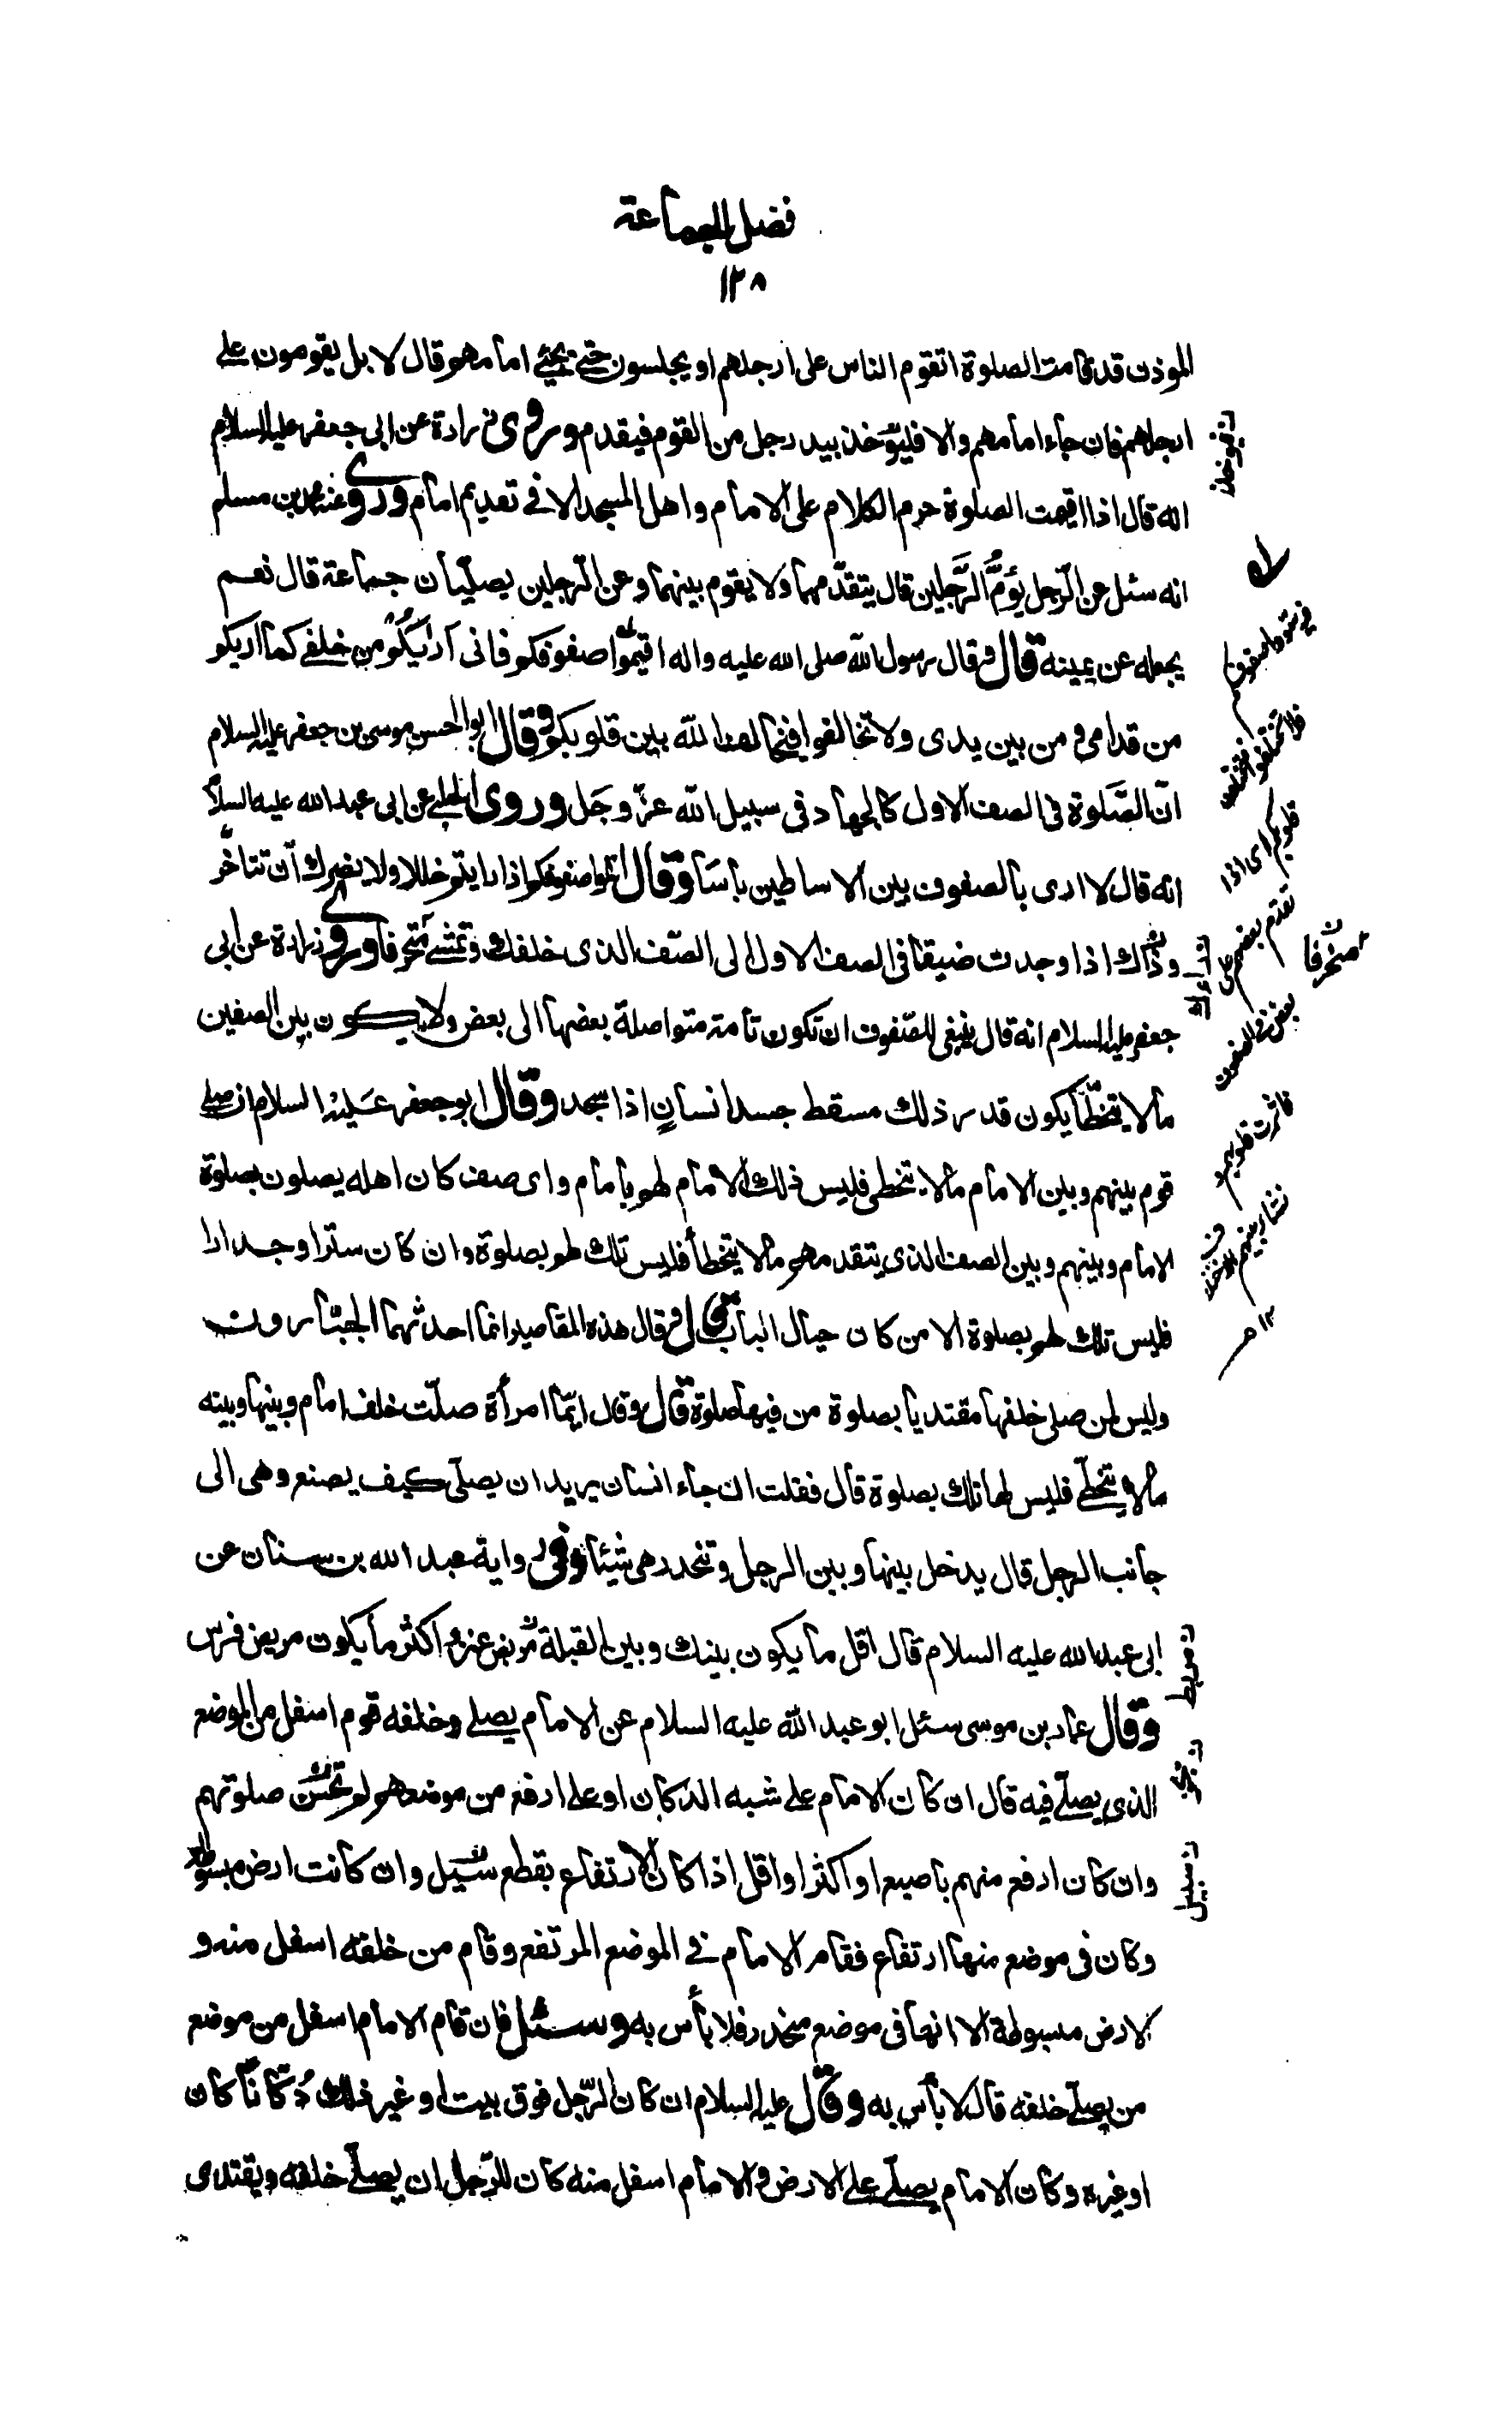 فضل الجماعة
١٢٨
الموذن قد قامت الصلوة اتقوم الناس على ارجلهم او يجلسون حتى يجئ امامهم قال لا بل يقومون على
ارجلهم فان جاء امامهم والا فليؤخذ بيد رجل من القوم فيقدم وروى زرارة عن ابى جعفر عليه السلام
انه قال اذا اقيمت الصلوة حرم الكلام على الامام واهل المسجد الا فى تقديم امام وروى عنه محمد بن مسلم
انه سئل عن الرّجل يؤمُّ الرَّجلين قال يتقدّمهما ولا يقوم بينهما وعن الرجلين يصلّيان جماعة قال نعم
يجعله عن يمينه قال و قال رسول الله صلى الله عليه واله اقيموا صفوفكم فانى اراكم من خلفى كما اريكم
من قدامى و من بين يدى ولا تخالفوا فيخالف الله بين قلوبكم وقال ابوالحسن موسى بن جعفر عليه السلام
انّ الصّلوة فى الصف الاول كالجهاد فى سبيل الله عزّ وجَل وروى الحلبى عن ابى عبد الله عليه السلام
انه قال لا ارى بالصفوف بين الاساطين باسَا وقال اتموا صفوفكم اذا رايتم خللا ولا يضرك أن تتاخّر
وذاك اذا وجدت ضيقا فى الصف الاول الى الصّف الذى خلفك وتمشى متحرفا وروى زرارة عن ابى
جعفر عليه السلام انه قال ينبغى للصّفوف ان تكون تامة متواصلة بعضها الى بعض ولا يكون بين الصفين
مالا يتخطّأ يكون قدر ذلك مسقط جسد انسانٍ اذا سجد وقال ابو جعفر عليه السلام ان صلى
قوم بينهم وبين الامام مالا يتخطى فليس ذلك الامام لهم بامام واى صف كان اهله يصلون بصلوة
الامام وبينهم وبين الصف الذى يتقدمهم مالا يتخطأ فليس تلك لهم بصلوة وان كان سترا وجدارا
فليس تلك لهم بصلوة الا من كان حيال الباب قال و قال هذه المقاصير انما احدثها الجبّارون
وليس لمن صلى خلفها مقتديا بصلوة من فيها صلوة قال وقال ايّما امرأة صلّت خلف امام وبينها وبينه
مالا يتخطّى فليس لها تلك بصلوة قال فقلت ان جاء انسان يريد ان يصلّى كيف يصنع وهى الى
جانب الرجل قال يدخل بينها وبين الرجل وتنحدر هى شيئا وفى رواية عبد الله بن سنان عن
ابى عبد الله عليه السلام قال اقل ما يكون بينك وبين القبلة مربض عنز و اكثر ما يكون مربض فرس
وقال عمار بن موسى سئل ابو عبد الله عليه السلام عن الامام يصلى وخلفه قوم اسفل من الموضع
الذى يصلّى فيه قال ان كان الامام على شبه الدكان او على ارفع من موضعهم لم تحسن صلوتهم
وان كان ارفع منهم باصبع او اكثر او اقل اذا كان الارتفاع بقطع سيل وان كانت ارض مبسوطة
وكان فى موضع منها ارتفاع فقام الامام فى الموضع المرتفع وقام من خلفه اسفل منه و
الارض مبسوطة الا انها فى موضع منحدر فلا بأس به وسئل فان قام الامام اسفل من موضع
من يصلّى خلفه قال لا بأس به وقال عليه السلام ان كان الرّجل فوق بيت او غير ذلك دُكّانًا كان
او غيره وكان الامام يصلّى على الارض والامام اسفل منه كان للرّجل ان يصلّى خلفه ويقتدى
فليوخذ
فلا تختلفوا فتختلف
قلوبكم اى اذا
تقدم بعضهم على
بعض فى الصفوف
تاثرت قلوبهم و
نشا بينهم الخلف
١٢ م
منحرفا
ن مربط
ن تجز
ن سبيل